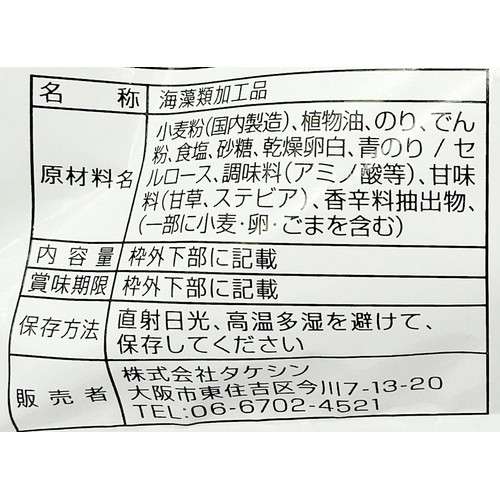 名称 海藻類加工品
原材料名 小麦粉(国内製造)、植物油、のり、でん
粉、食塩、砂糖、乾燥卵白、青のり/セ
ルロース、調味料(アミノ酸等)、甘味
料(甘草、ステビア)、香辛料抽出物、
(一部に小麦・卵・ごまを含む)
内容量 枠外下部に記載
賞味期限 枠外下部に記載
保存方法 直射日光、高温多湿を避けて、
保存してください
販売者 株式会社タケシン
大阪市東住吉区今川7-13-20
TEL:06-6702-4521